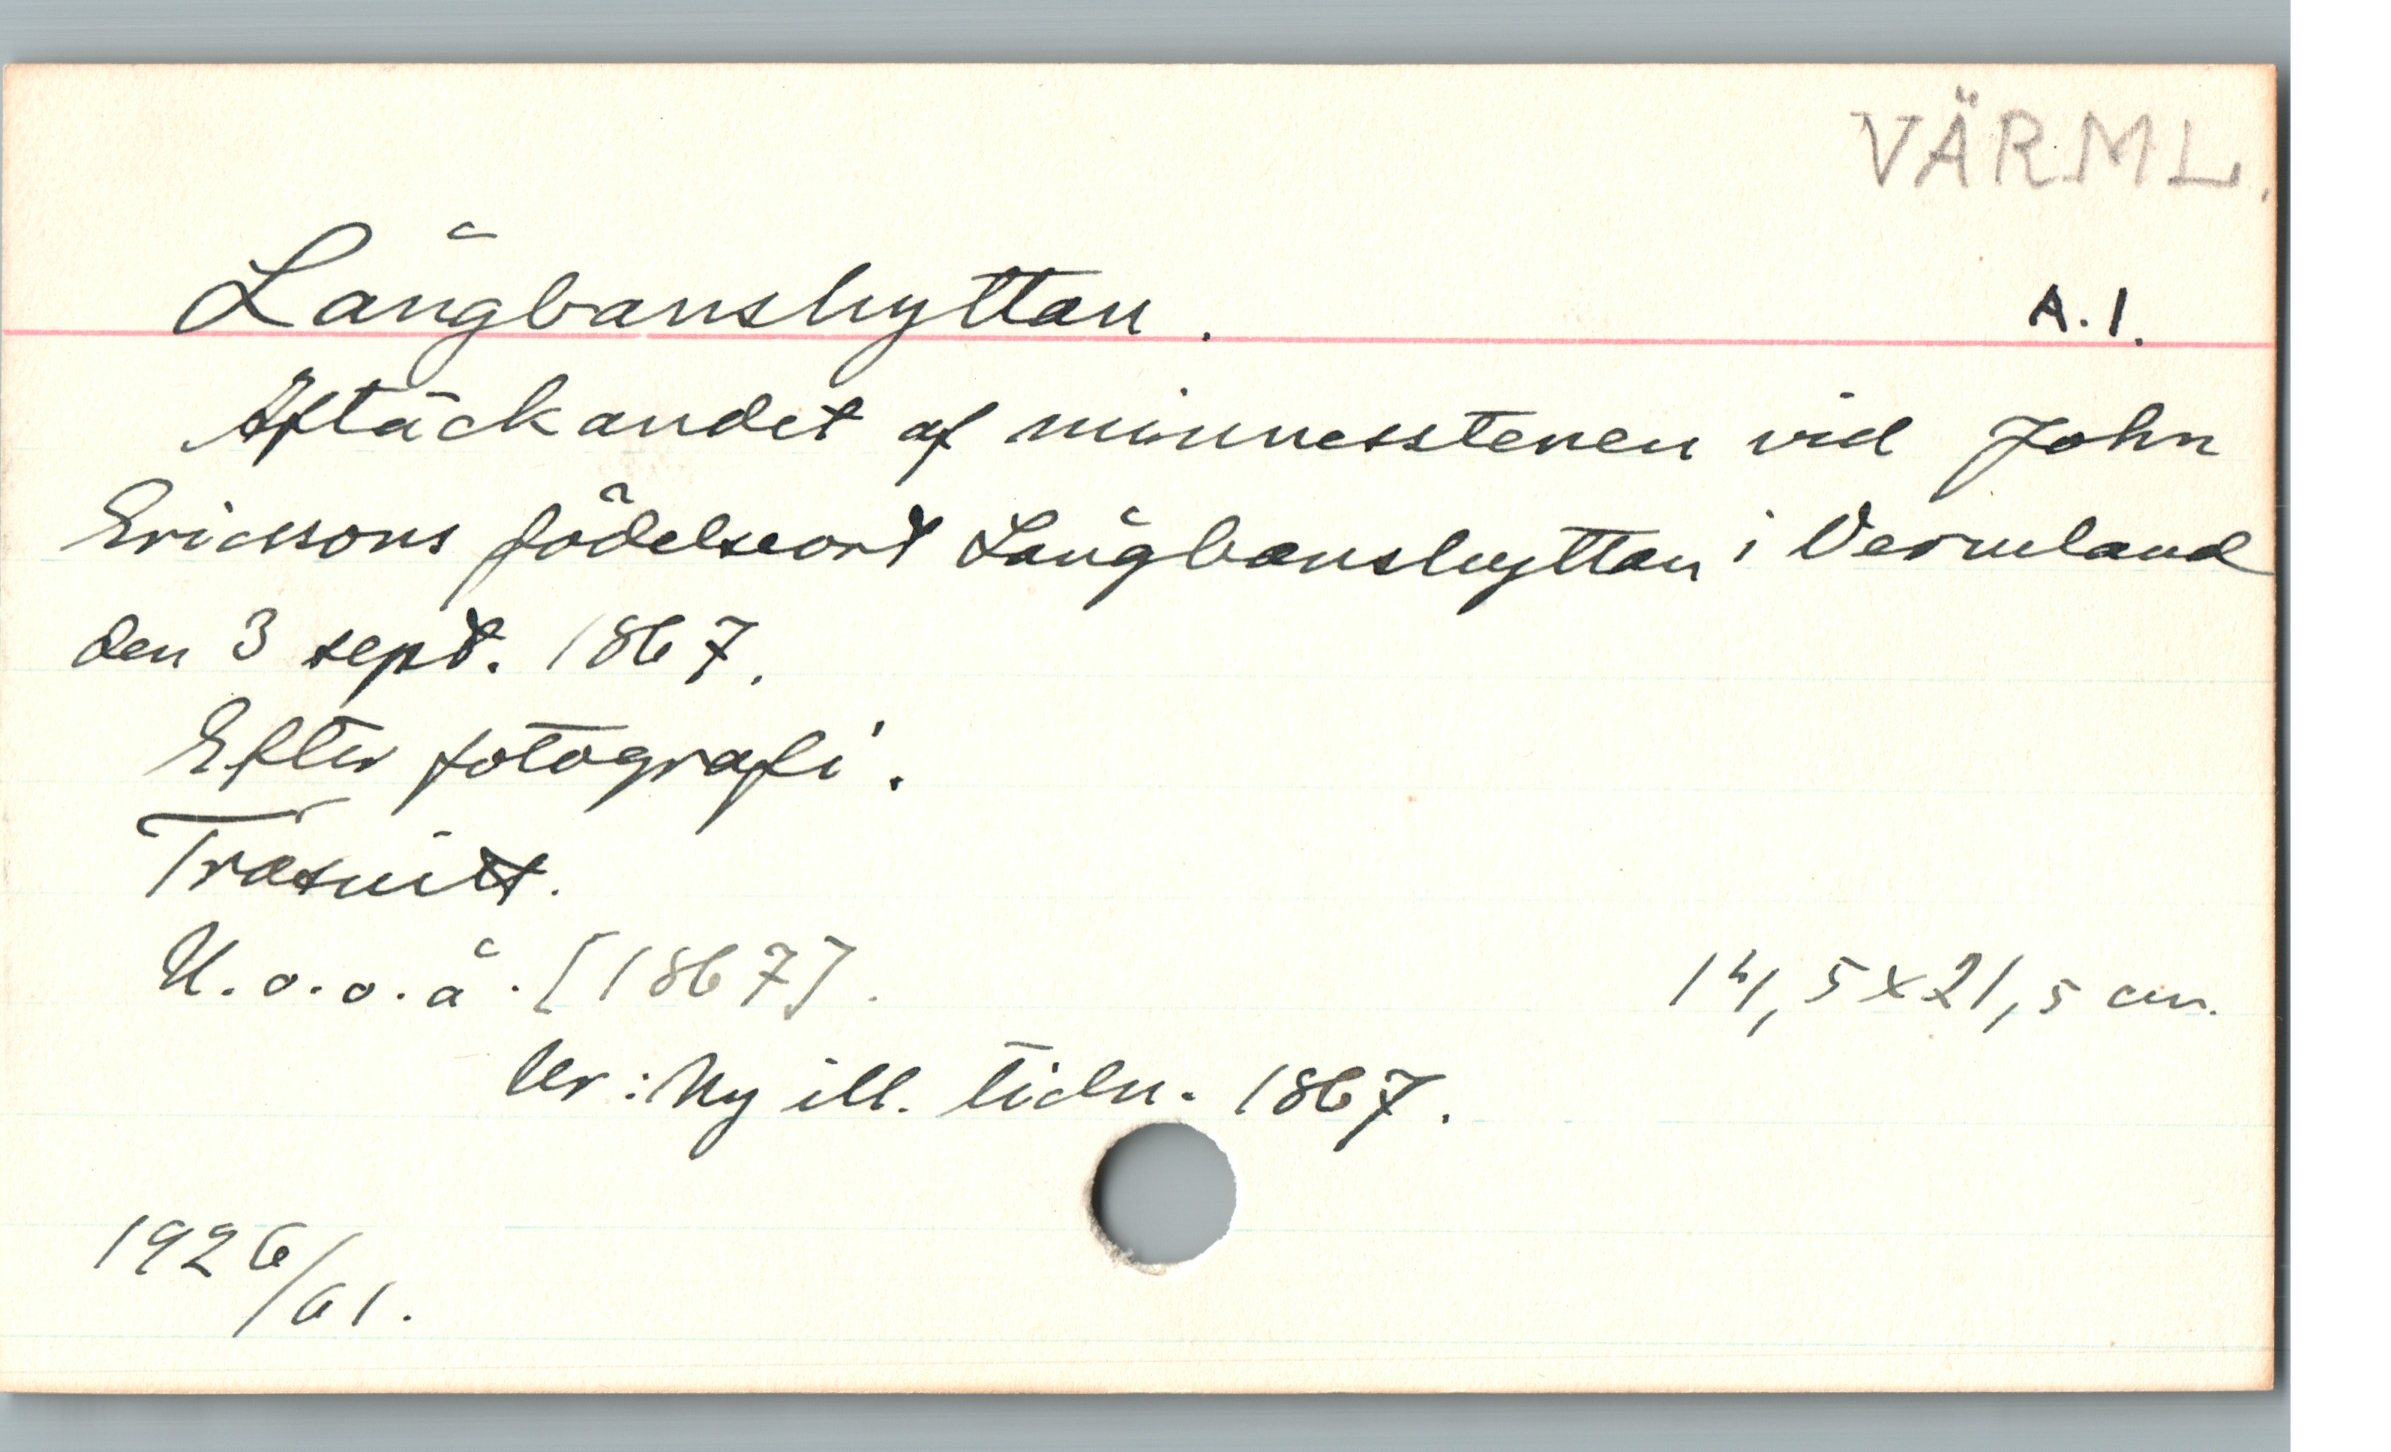 VÄRML.
Långbanshyttan.
A.1.
Aftäckandet af minnesstenen vid John
Ericsons födelseort Långbanshyttan i Vermland
den 3 sept. 1867.
Efter fotografi.
Träsnitt.
U.o.o.å. [1867].
14,5x21,5 cm.
Ur: Ny ill. tidn. 1867.
1926/61.